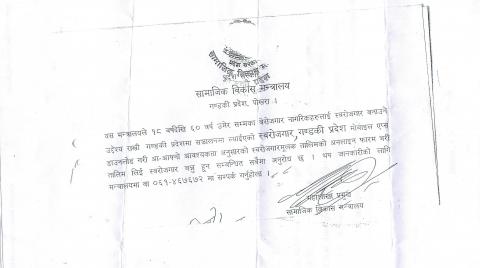 सामाजिक विकास मन्त्रालय
गण्डकी प्रदेश, पोखरा ।
यस मन्त्रालयले १८ वर्षदेखि ६० वर्ष उमेर सम्मका बेरोजगार नागरिकहरुलाई स्वरोजगार बनाउने
उद्देश्य राखी गण्डकी प्रदेशमा सञ्चालनमा ल्याईएको स्वरोजगार, गण्डकी प्रदेश मोबाइल एप्स
डाउनलोड गरी आ-आफ्नो आवश्यकता अनुसारको स्वरोजगारमूलक तालिमको अनलाइन फारम भरी
तालिम लिई स्वरोजगार बन्नु हुन सम्बन्धित सबैमा अनुरोध छ । थप जानकारीको लागि
मन्त्रालयमा वा ०६१-४६७६७२ मा सम्पर्क गर्नुहोला ।
महाशाखा प्रमुख
सामाजिक विकास मन्त्रालय